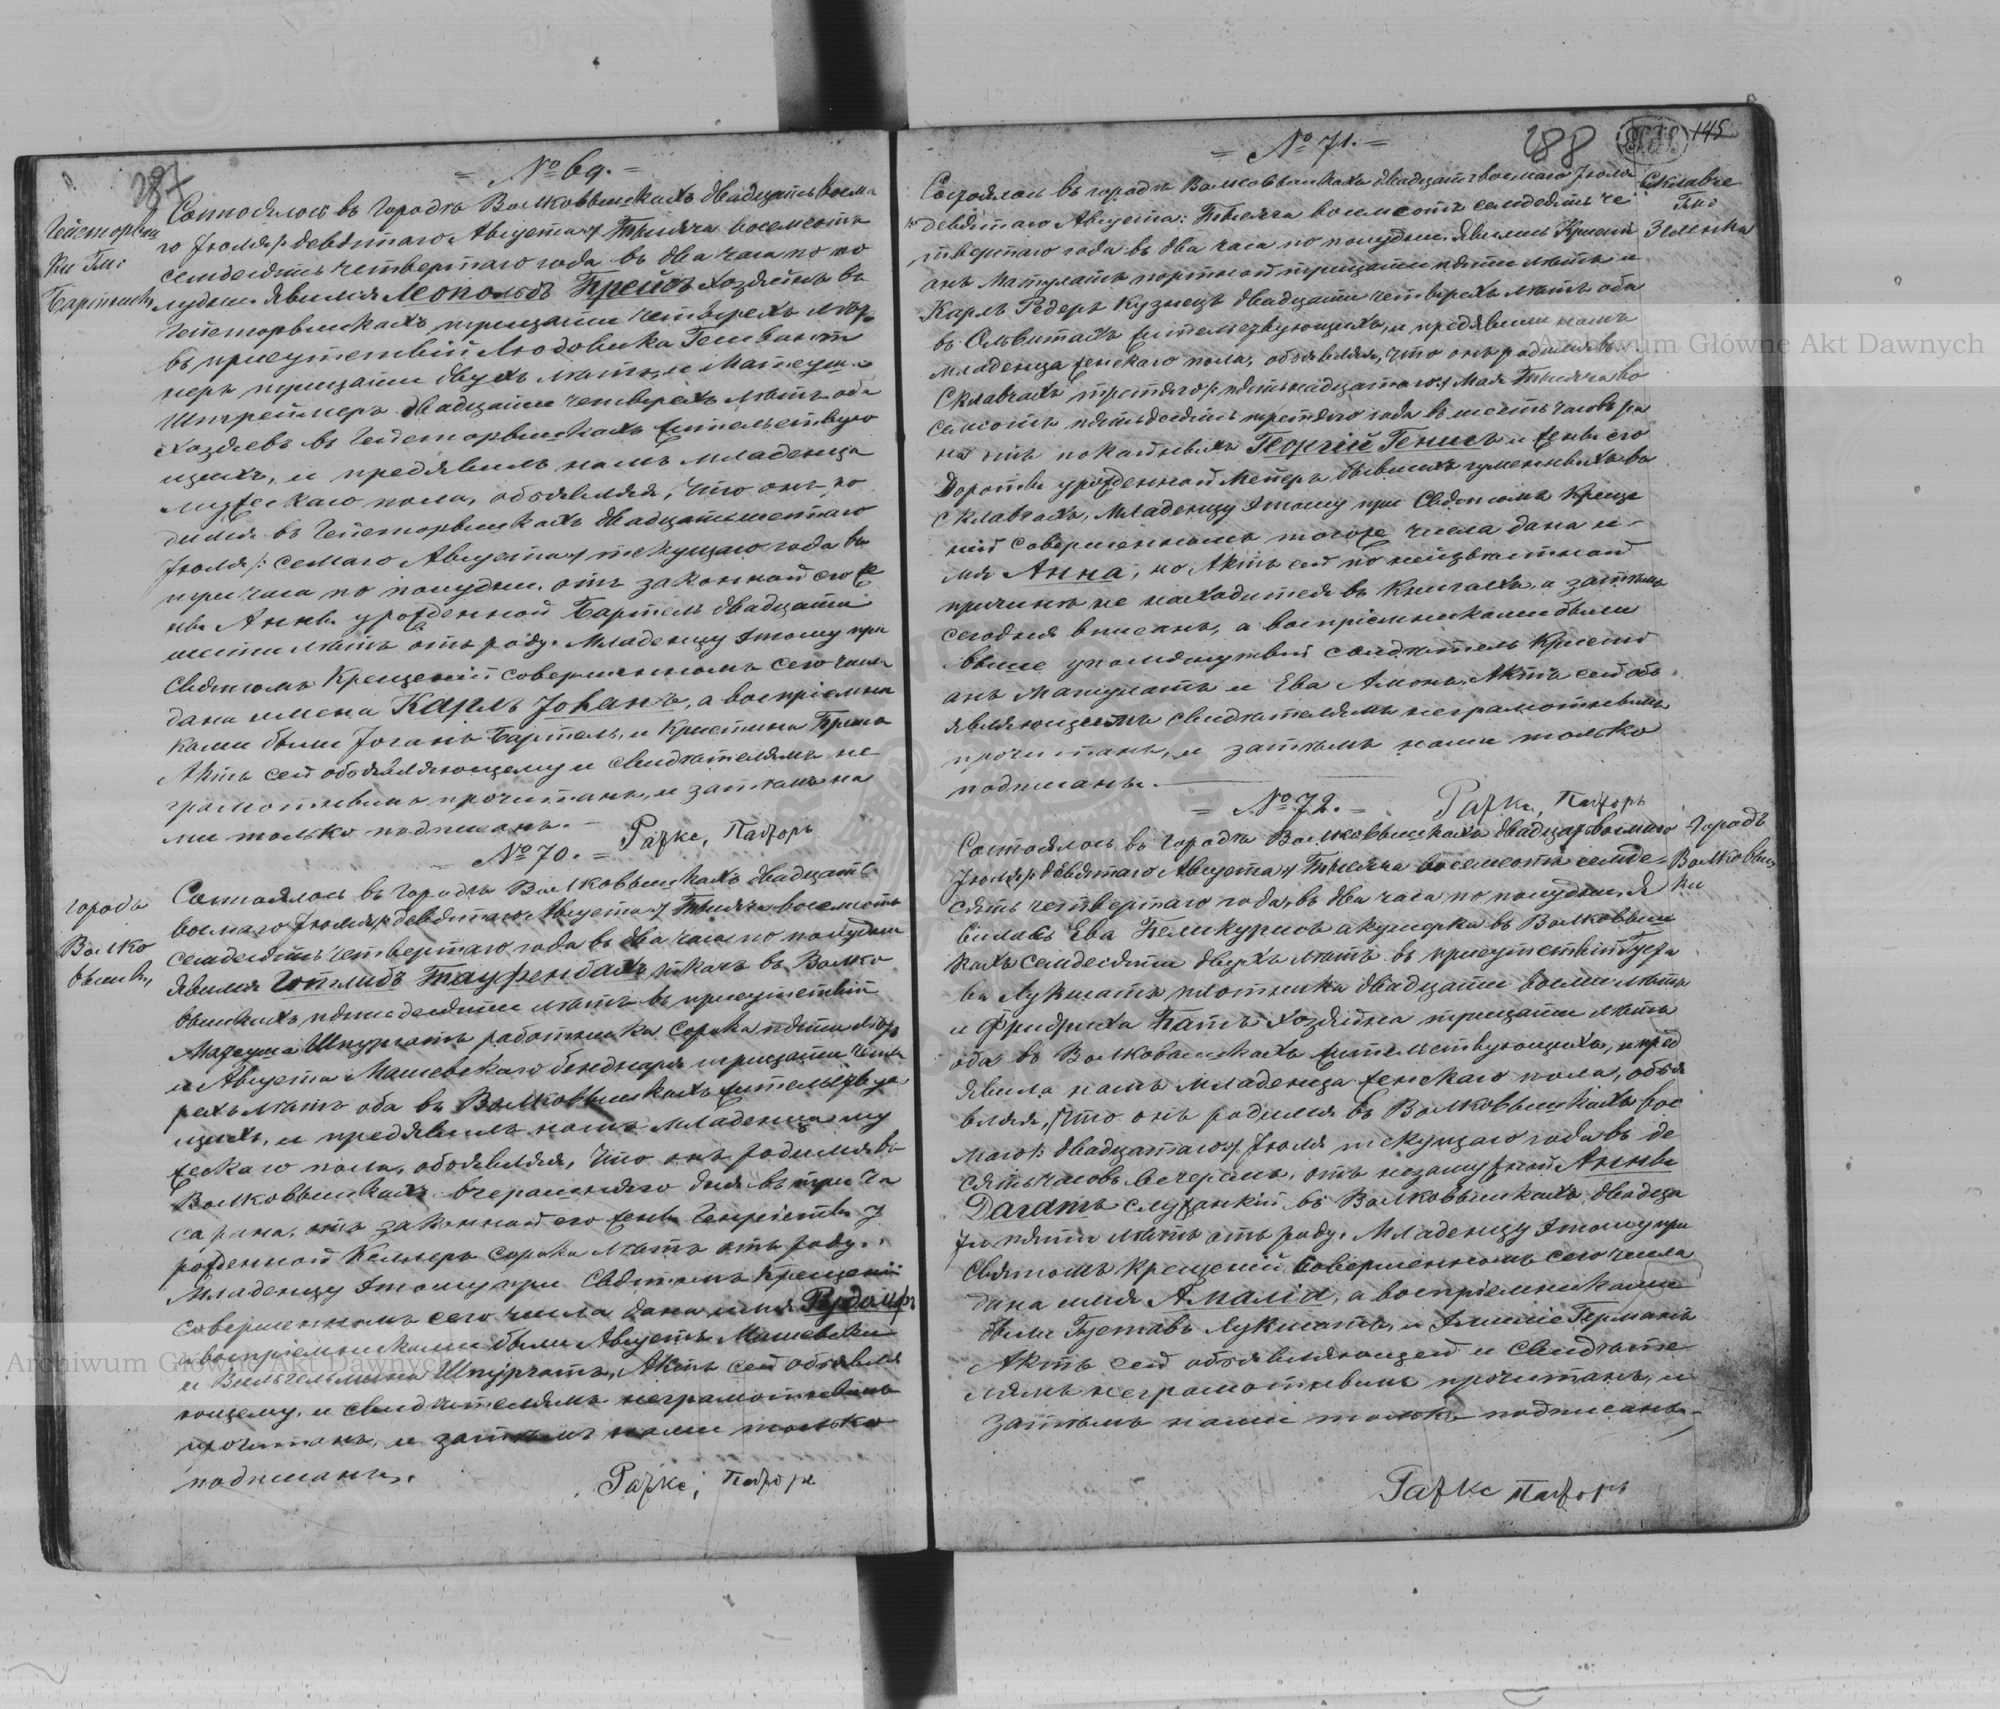 287
= № 69. =
Гейсторвиш
ки Гм:
Бартники
Состоялось въ городѣ Волковышкахъ двадцать восьма
го Іюля /: девятаго Августа :/ Тысяча восемсотъ
семдесятъ четвертаго года въ два часа по по
лудни. Явился Леопольдъ Брейдъ хозяинъ въ
Гейсторвишкахъ тридцати четырехъ лѣтъ
въ присутствіи Людовика
неръ тридцати двухъ лѣтъ, и Матеуша
Штреймеръ двадцати четырехъ лѣтъ оба
хозяевъ въ Гейсторвишкахъ жительствую
щихъ, и предявилъ намъ младенца
мужескаго пола, объявляя, что онъ ро
дился въ Гейсторвишкахъ двадцать шестаго
Іюля /: семаго Августа :/ текущаго года въ
три часа по полудни, отъ законной его же
ны Анны урожденной Бартель двадцати
шести лѣтъ отъ роду. Младенцу этому при
Святомъ Крещеніи совершенномъ сего числа
даны имена Карлъ Іоганъ, а воспріемни
ками были Іоганъ Бартель, и Кристина
Актъ сей объявляющему и свидѣтелямъ не
грамотнымъ прочитанъ, и затѣмъ на
ми только подписанъ. —
Рацке, Пасторъ
№ 70. =
городъ
Волко
вышки,
Состоялось въ городѣ Волковышкахъ двадцать
восмаго Іюля /: девятаго Августа :/ Тысяча восемсотъ
семдесятъ четвертаго года въ два часа по полудни
Явился Готлибъ Тауфенбахъ ткачъ въ Волко
вышкахъ пятидесяти лѣтъ въ присутствіи
Матеуша Шпургатъ работника сорока пяти лѣтъ,
и Августа Машевскаго бенднаря тридцати четы
рехъ лѣтъ оба въ Волковышкахъ жительствую
щихъ, и предявилъ намъ младенца му
жескаго пола, объявляя, что онъ родился въ
Волковышкахъ вчерашняго дня въ три ча
са рана, отъ законной его жены Генріеты у
рожденной Келлеръ сорока лѣтъ отъ роду.
Младенцу этому при Святомъ Крещеніи
совершенномъ сего числа дано имя Рудольфъ
а воспріемниками были Августъ Машевски
и Вильгельмина Шпургатъ, Актъ сей объявля
ющему, и свидѣтелямъ неграмотнымъ
прочитанъ, и затѣмъ нами только
подписанъ.
Рацке, Пасторъ
= № 71. =
288
145
Склавче
Гм:
Зеленка
Состоялось въ городѣ Волковышкахъ двадцать восмаго Іюля
/: девятаго Августа: Тысяча восемсотъ семдесятъ че
твертаго года въ два часа по полудни. Явились Кристі
анъ Матулатъ портной тридцати пяти лѣтъ и
Карлъ Редеръ кузнецъ двадцати четырехъ лѣтъ оба
въ Ольвитахъ жительствующихъ, и предявили намъ
младенца женскаго пола, объявляя, что онъ родился въ
Склавчахъ третяго /: пятьнадцатаго :/ Мая Тысяча во
семсотъ пятьдесятъ третяго года въ шесть часовъ ра
на отъ покойныхъ Георгій Генисъ и жены его
Доротеи урожденной Мейеръ бывшихъ гуменныхъ въ
Склавчахъ, Младенцу этому при Святомъ Креще
ніи совершенномъ тогоже числа дана и-
мя Анна, но Актъ сей по неизвѣстной
причинѣ не находится въ Книгахъ, а затѣмъ
сегодня вписанъ, а воспріемниками были
выше упомянутый свидѣтель Кристі
анъ Матулатъ и Ева Амонъ. Актъ сей объ
являющимъ свидѣтелямъ неграмотнымъ
прочитанъ, и затѣмъ нами только
подписанъ. —
Рацке, Пасторъ
= № 72. =
Городъ
Волковыш
ки
Состоялось въ городѣ Волковышкахъ двадцать восмаго
Іюля /: девятаго Августа :/ Тысяча восемсотъ семде-
сятъ четвертаго года, въ два часа по полудни. Я
вилась Ева акушерка въ Волковыш
кахъ семдесяти двухъ лѣтъ въ присутствіи Густа
ва Лукшатъ плотника двадцати восми лѣтъ
и Фридриха Батъ хозяина тридцати лѣтъ
оба въ Волковышкахъ жительствующихъ, и пред
явила намъ младенца женскаго пола, объя
вляя, что онъ родился въ Волковышкахъ вос
маго /: двадцатаго :/ Іюля текущаго года въ де
сять часовъ вечеромъ, отъ незамужной Анны
Дагатъ служанкіи въ Волковышкахъ двадца
ти пяти лѣтъ отъ роду. Младенцу этому при
Святомъ Крещеніи совершенномъ сего числа
дана имя Амалія, а воспріемниками
были Густавъ Лукшатъ, и Германъ
Актъ сей объявляющей и свидѣте
лямъ неграмотнымъ прочитанъ, и
затѣмъ нами только подписанъ.
Рацке Пасторъ
Archiwum Główne Akt Dawnych
Archiwum Główne Akt Dawnych